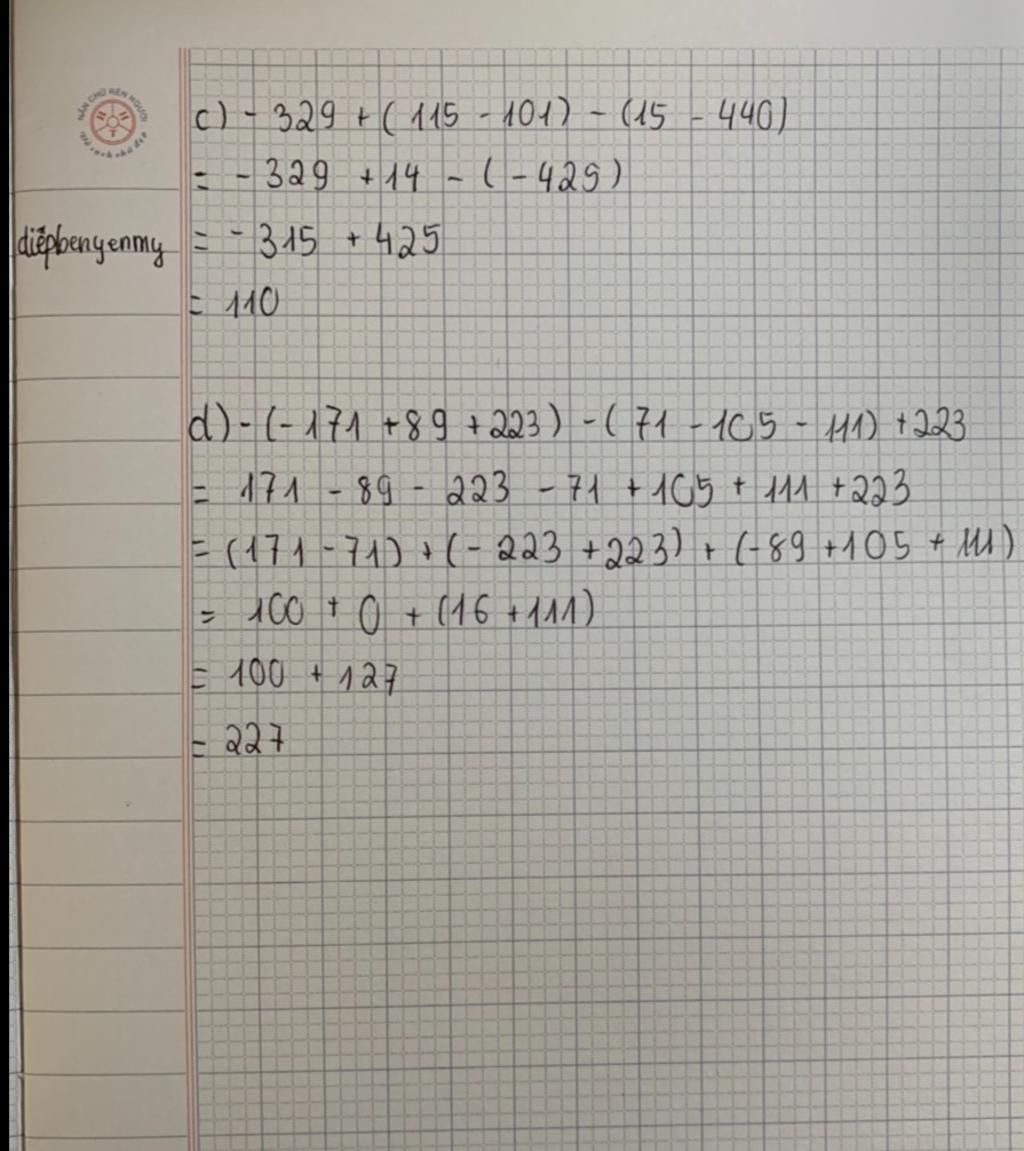 NẮN CHỮ RÈN NGƯỜI
c) - 329 + ( 115 - 101) - (15 - 440)
= - 329 + 14 - ( - 425)
diẹ̃pbenyenmy
= - 315 + 425
= 110
d) - (- 171 + 89 + 223) - ( 71 - 105 - 111) + 223
= 171 - 89 - 223 - 71 + 105 + 111 + 223
= (171 - 71) + (- 223 + 223) + (- 89 + 105 + 111)
= 100 + 0 + (16 + 111)
= 100 + 127
= 227